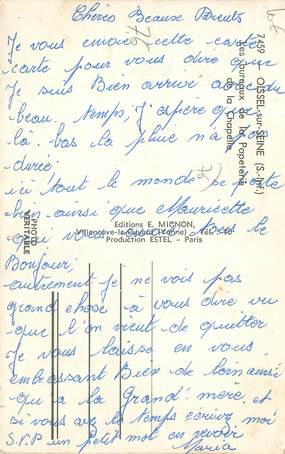 Chèrs Beaux Parents
Je vous envoie cette
carte pour vous dire que
Je suis Bien arrivé
beau temps, J'aspère que
là bas la pluie n'a pas
durée.
ici tout le monde se porte
bien ainsi que Mauricette
qui vous le
Bonjour,
autrement Je ne vois pas
grand chose à vous dire vu
que l'on vient de quitter
Je vous laisse en vous
embrassant Bien de loin ainsi
qu'a la Grand' mère. et
si vous avez le temps écrivez moi
S.V.P un petit mot en
Maria
7459 OISSEL-sur-SEINE (S.-Inf.)
Les bureaux de la Papeterie
de la Chapelle
Editions E. MIGNON,
Production ESTEL - Paris
PHOTO
VÉRITABLE